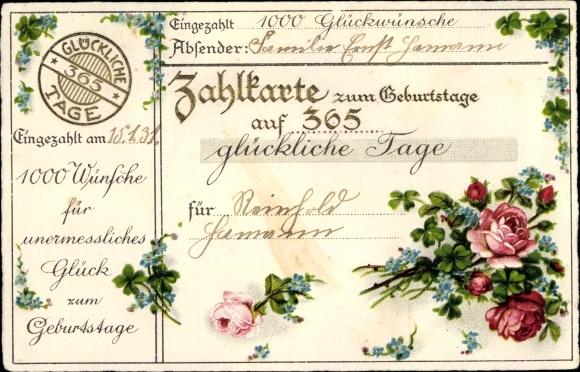 GLÜCKLICHE
365
TAGE
Eingezahlt am 15.1.31.
1000 Wünsche
für
unermessliches
Glück
zum
Geburtstage
Eingezahlt 1000 Glückwünsche
Absender: Familie Ernst Hamann
Zahlkarte zum Geburtstage
auf 365
glückliche Tage
für Reinhold
Hamann